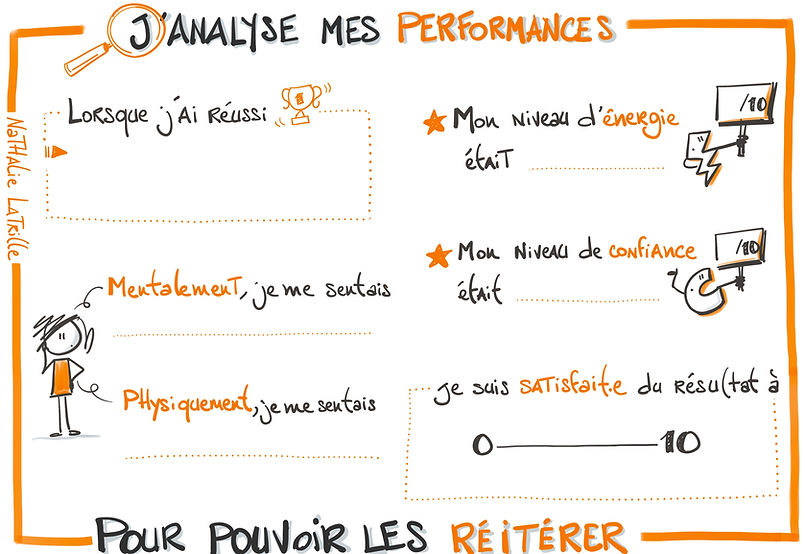 J'ANALYSE MES PERFORMANCES
NATHALIE LATRILLE
LORSQUE J'AI RÉUSSI
1
★ MON NIVEAU D'ÉNERGIE
/10
ÉTAIT
★ MON NIVEAU DE CONFIANCE
/10
ÉTAIT
MENTALEMENT, JE ME SENTAIS
PHYSIQUEMENT, JE ME SENTAIS
JE SUIS SATISFAIT.E DU RÉSULTAT À
0 10
POUR POUVOIR LES RÉITÉRER